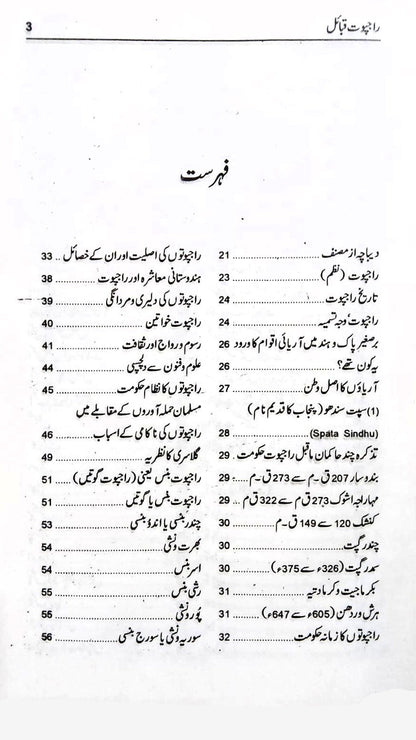 راجپوت قبائل
3
فہرست
دیباچہ از مصنف 21
راجپوت (نظم) 23
تاریخ راجپوت 24
راجپوت، وجہ تسمیہ 24
برصغیر پاک و ہند میں آریائی اقوام کا ورود 26
یہ کون تھے؟ 26
آریاؤں کا اصل وطن 27
(1) سپت سندھو (پنجاب کا قدیم نام)
(Spata Sindhu) 28
تذکرہ چند حاکمان ماقبل راجپوت حکومت 29
بندوسار 207 ق-م سے 273 ق-م 29
مہاراجہ اشوک 273 ق م سے 322 ق م 29
کنشک 120 سے 149 ق-م 30
چندر گپت 30
سمدر گپت (326ء سے 375ء) 30
بکرماجیت وکرمادتیہ 31
ہرش وردھن (605ء سے 647ء) 31
راجپوتوں کا زمانہ حکومت 32
راجپوتوں کی اصلیت اور ان کے خصائل 33
ہندوستانی معاشرہ اور راجپوت 38
راجپوتوں کی دلیری و مردانگی 39
راجپوت خواتین 40
رسوم و رواج اور ثقافت 41
علوم و فنون سے دلچسپی 44
راجپوتوں کا نظام حکومت 45
مسلمان حملہ آوروں کے مقابلے میں
راجپوتوں کی ناکامی کے اسباب 46
گلاسری کا نظریہ 49
راجپوت بنس یعنی (راجپوت گوتیں) 51
راجپوت بنس یا گوتیں 51
چندر بنسی یا اندو بنسی 53
بھرت ونشی 54
اسر بنس 54
رشی بنس 55
پورو ونشی 55
سوریہ ونشی یا سورج بنسی 56